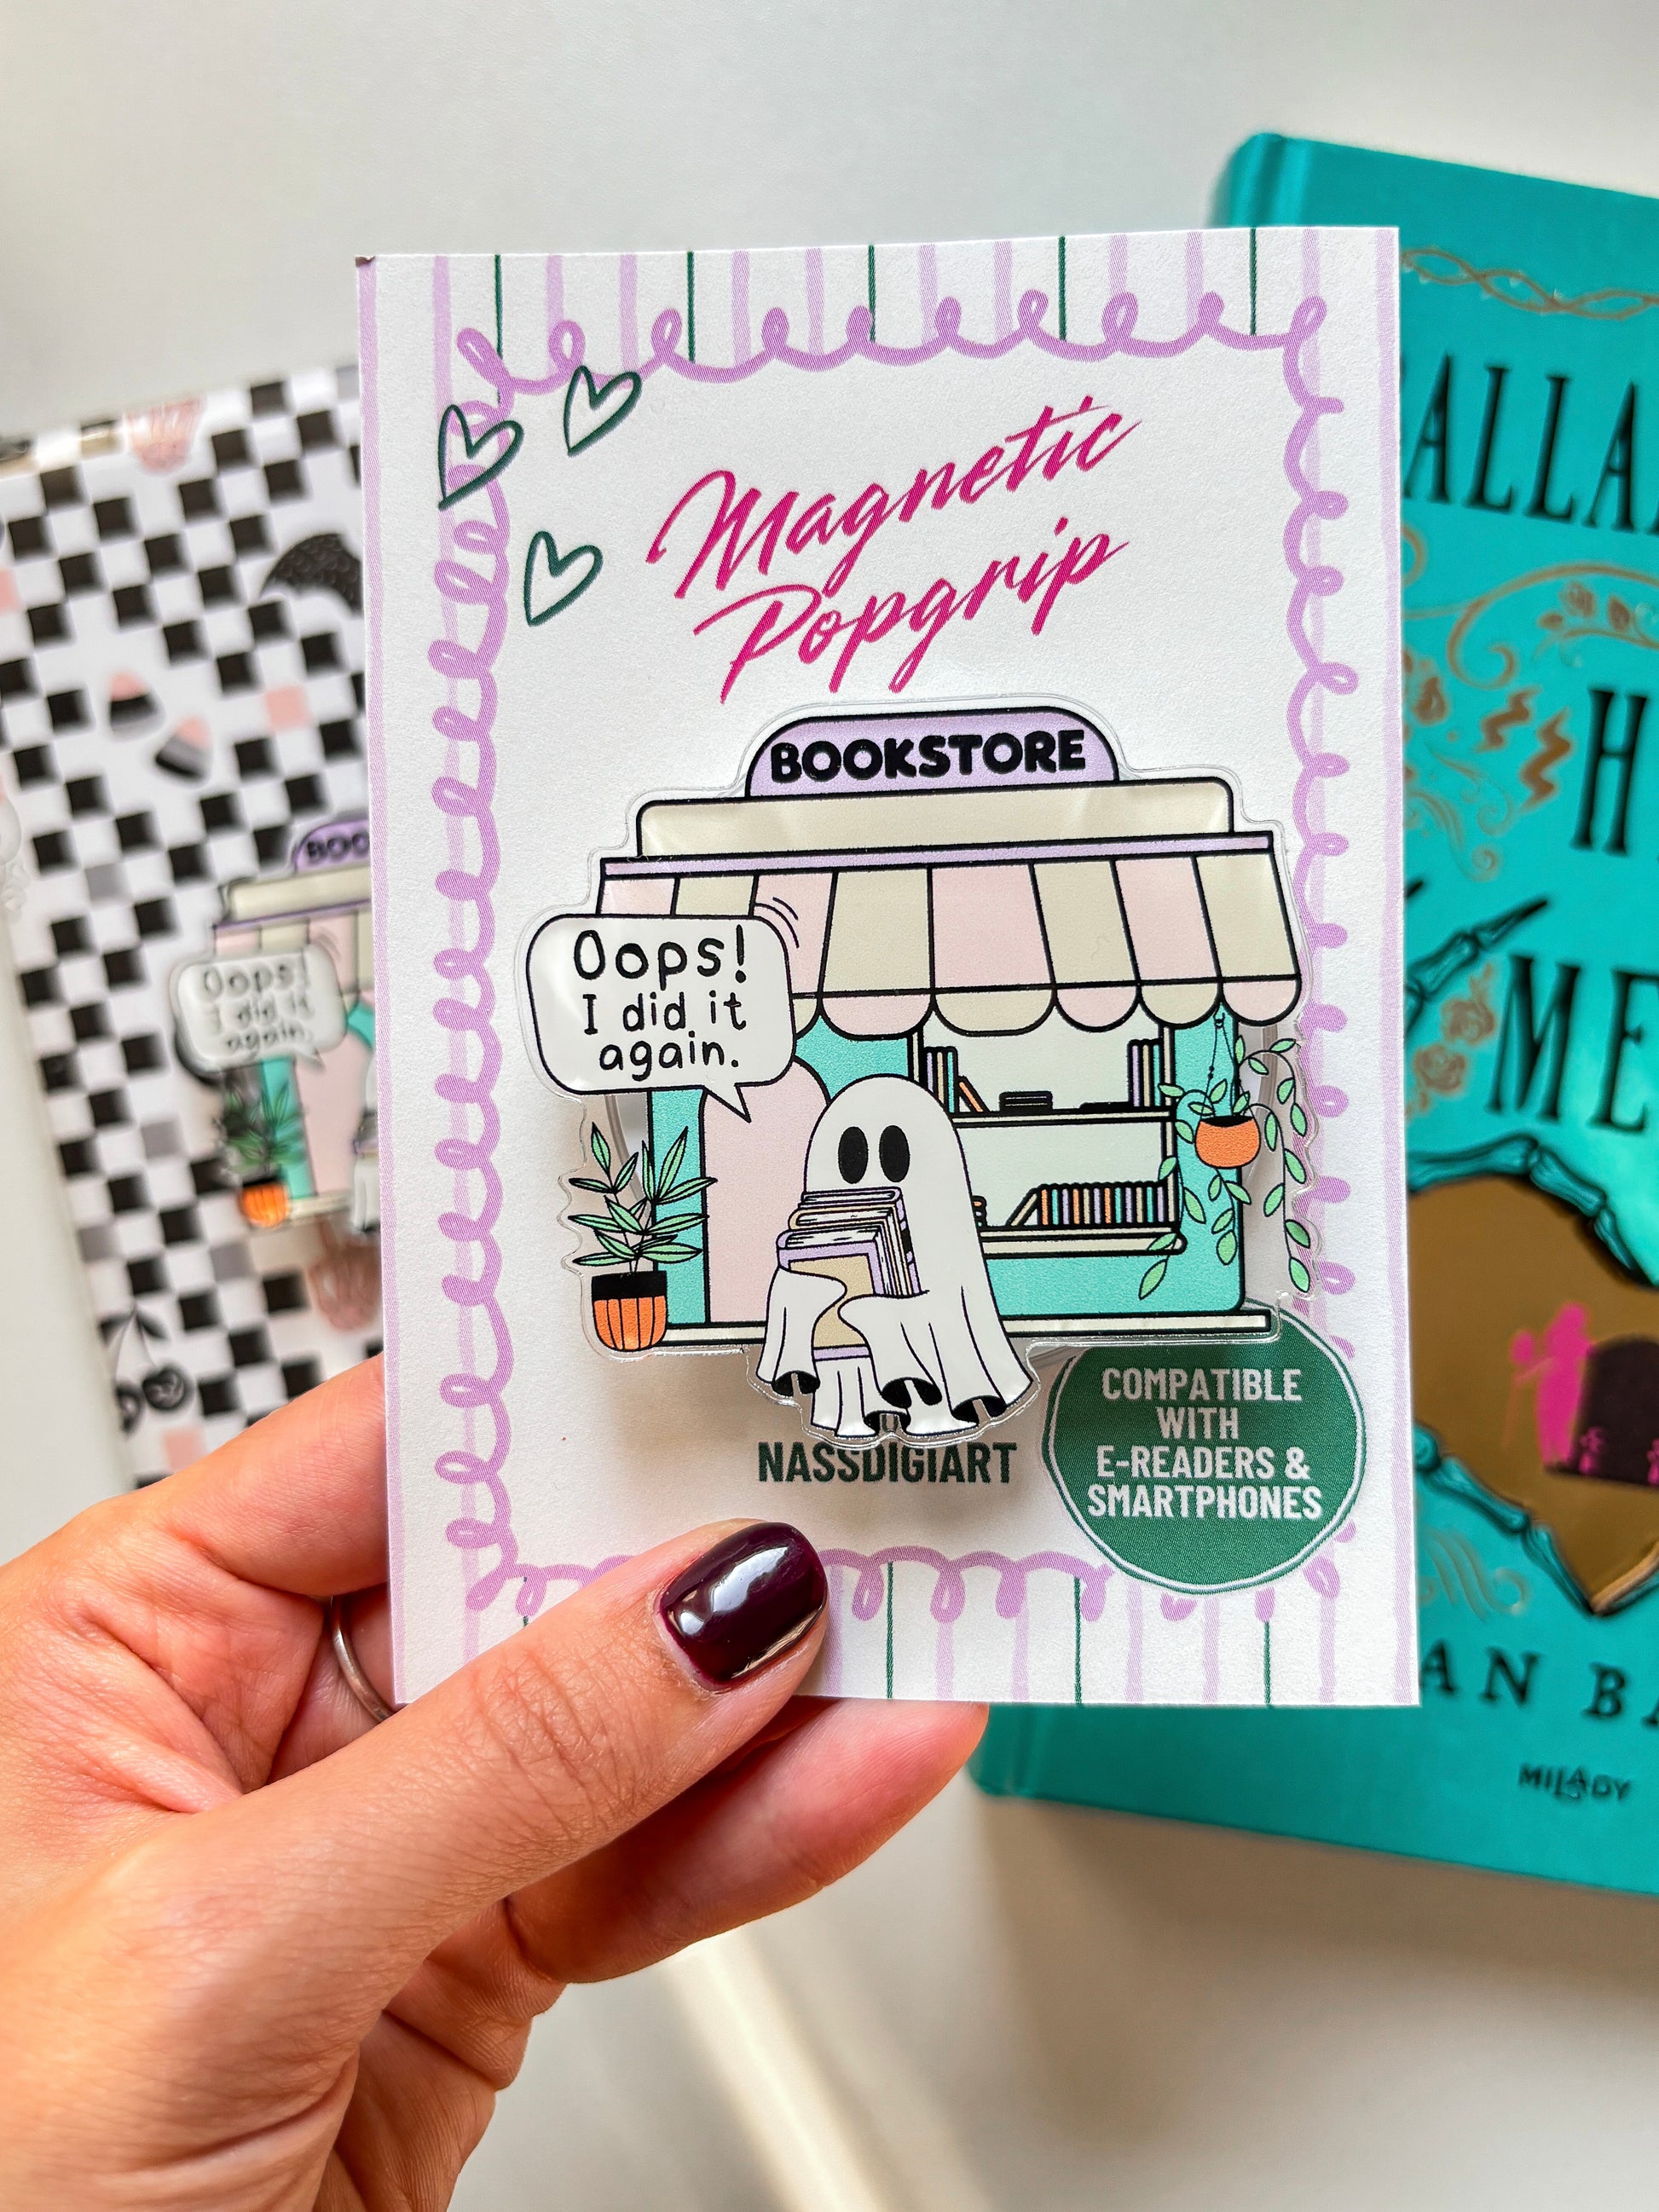 Magnetic
Popgrip
BOOKSTORE
Oops!
I did it
again.
NASSDIGIART
COMPATIBLE
WITH
E-READERS &
SMARTPHONES
Oops!
I did it
again.
MILADY